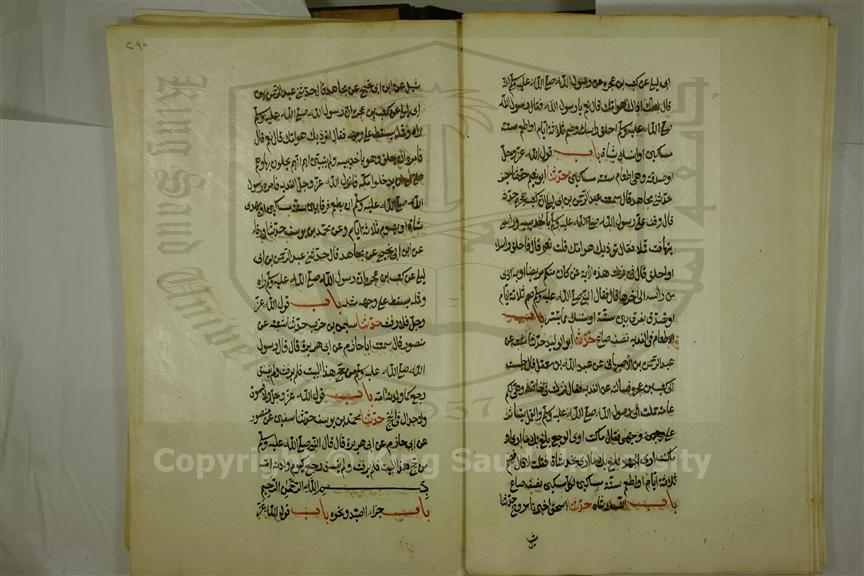 ابى ليلى عن كعب بن عجرة عن رسول الله صلى الله عليه وسلم انه
قال لعلك اذاك هوامك قال نعم يا رسول الله فقال رسول الله
صلى الله عليه وسلم احلق راسك وصم ثلاثة ايام او اطعم ستة
مساكين او انسك بشاة باب قول الله عز وجل
او صدقة وهى اطعام ستة مساكين حدثنا ابو نعيم حدثنا سيف
حدثنى مجاهد قال سمعت عبد الرحمن بن ابى ليلى ان كعب بن عجرة حدثه
قال وقف على رسول الله صلى الله عليه وسلم بالحديبية وراسى
يتهافت قملا فقال يؤذيك هوامك قلت نعم قال فاحلق راسك
او احلق قال فى نزلت هذه الاية فمن كان منكم مريضا او به اذى
من راسه الى اخرها فقال النبى صلى الله عليه وسلم صم ثلاثة ايام
او تصدق بفرق بين ستة او نسك مما تيسر باب
الاطعام فى الفدية نصف صاع حدثنا ابو الوليد حدثنا شعبة عن
عبد الرحمن بن الاصبهانى عن عبد الله بن معقل قال جلست
الى كعب بن عجرة فسالته عن الفدية فقال نزلت فى خاصة وهى لكم
عامة حملت الى رسول الله صلى الله عليه وسلم والقمل يتناثر
على وجهى فقال ما كنت ارى الوجع بلغ بك ما ارى او
ما كنت ارى الجهد بلغ بك ما ارى تجد شاة فقلت لا قال فصم
ثلاثة ايام او اطعم ستة مساكين لكل مسكين نصف صاع
باب النسك شاة حدثنا اسحق اخبرنا روح حدثنا
٢٩٥
شبل عن ابن ابى نجيح عن مجاهد قال حدثنى عبد الرحمن بن
ابى ليلى عن كعب بن عجرة ان رسول الله صلى الله عليه وسلم
راه وقمله يسقط على وجهه فقال ايؤذيك هوامك قال نعم
فامره ان يحلق وهو بالحديبية ولم يتبين لهم انهم يحلون بها وهم
على طمع ان يدخلوا مكة فانزل الله عز وجل الفدية فامره رسول
الله صلى الله عليه وسلم ان يطعم فرقا بين ستة مساكين او يهدى
شاة او يصوم ثلاثة ايام وعن محمد بن يوسف حدثنا ورقاء
عن ابن ابى نجيح عن مجاهد قال حدثنى عبد الرحمن بن ابى
ليلى عن كعب بن عجرة ان رسول الله صلى الله عليه وسلم راه
وقمله يسقط على وجهه مثله باب قول الله عز
وجل فلا رفث حدثنا سليمن بن حرب حدثنا شعبة عن
منصور قال سمعت ابا حازم عن ابى هريرة قال قال رسول
الله صلى الله عليه وسلم من حج هذا البيت فلم يرفث ولم يفسق
رجع كما ولدته امه باب قول الله عز وجل ولا فسوق
ولا جدال فى الحج حدثنا محمد بن يوسف حدثنا سفين عن منصور
عن ابى حازم عن ابى هريرة قال قال النبى صلى الله عليه وسلم
من حج هذا البيت فلم يرفث ولم يفسق رجع كيوم ولدته امه
بسم الله الرحمن الرحيم
باب جزاء الصيد ونحوه باب قول الله عز
King Saud University
1957
Copyright © King Saud University